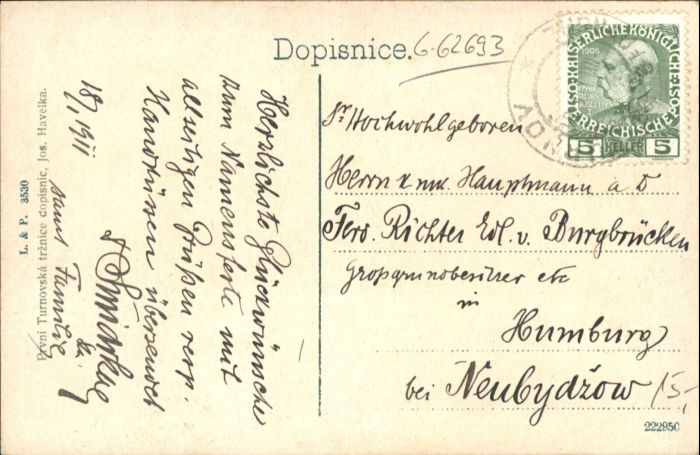 Dopisnice.
6-62693
Herzlichste Glückwünsche
zum Namensfeste mit
allseitigen Grüßen resp.
Handküssen übersendet
samt Familie
18/I 1911
Sr Hochwohlgeboren
Herrn k. Hauptmann a D
Ferd. Richter Edl. v. Burgbrücken
Großgrundbesitzer etc
in
Humburg
bei Neubydžow
15,-
KAISERLICHE KÖNIGLICHE
ÖSTERREICHISCHE
5 HELLER 5
První Turnovská tržnice dopisnic, Jos. Havelka.
L. & P. 3530
222950